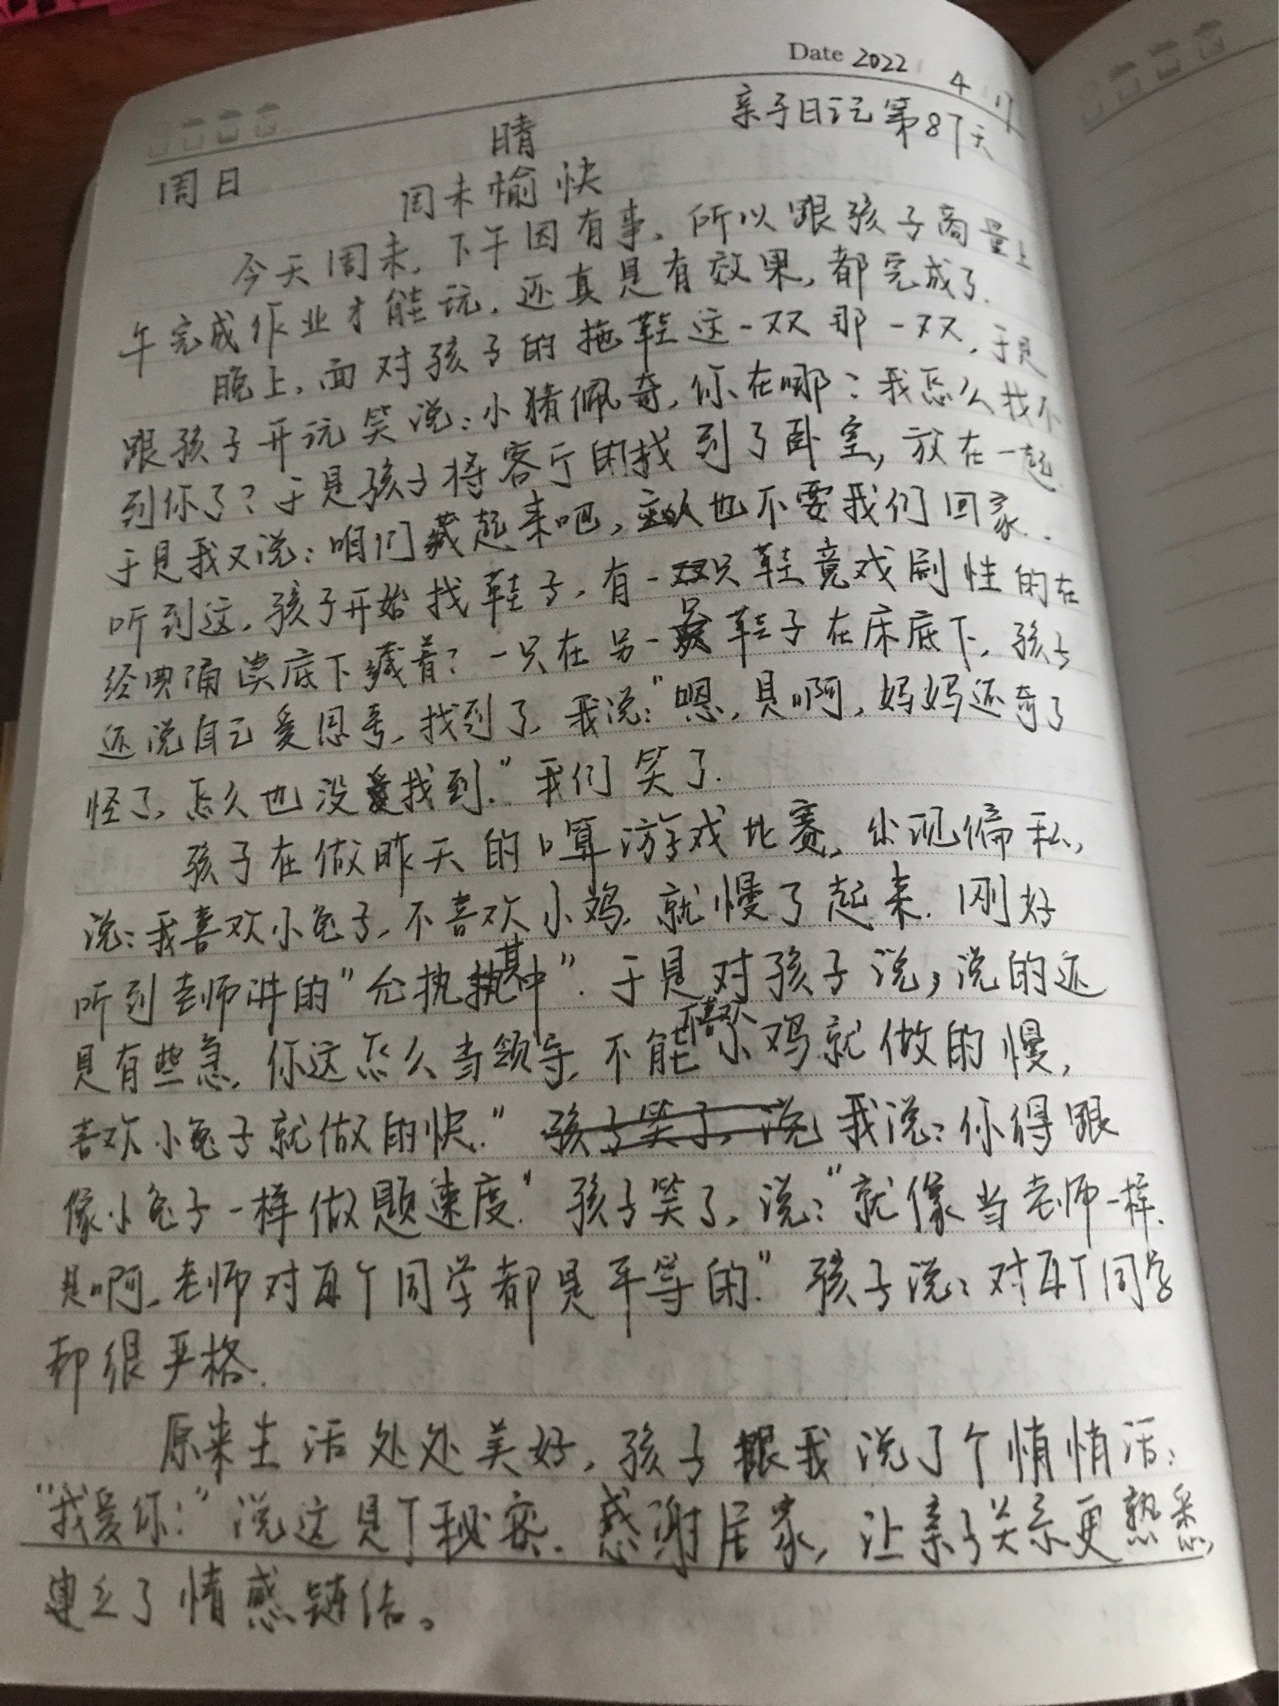 Date 2022 4 17
亲子日记第87天
周日 晴
周末愉快
今天周末，下午因有事，所以跟孩子商量上
午完成作业才能玩，还真是有效果，都完成了。
晚上，面对孩子的拖鞋这一双那一双，于是
跟孩子开玩笑说：小猪佩奇，你在哪？我怎么找不
到你了？于是孩子将客厅的找到了卧室，放在一起。
于是我又说：咱们藏起来吧，主人也不要我们回家。
听到这，孩子开始找鞋子，有一只鞋竟戏剧性的在
经典诵读底下藏着？一只在另一只鞋子在床底下，孩子
还说自己爱思考，找到了，我说："嗯，是啊，妈妈还奇了
怪了，怎么也没找到。"我们笑了。
孩子在做昨天的口算游戏比赛，出现偏私，
说：我喜欢小兔子，不喜欢小鸡，就慢了起来。刚好
听到老师讲的"允执其中"。于是对孩子说，说的还
是有些急，你这怎么当领导，不能不喜欢小鸡就做的慢，
喜欢小兔子就做的快。" 孩子笑了，说 我说：你得跟
像小兔子一样做题速度。"孩子笑了，说："就像当老师一样，
是啊，老师对每个同学都是平等的。"孩子说：对每个同学
都很严格。
原来生活处处美好，孩子跟我说了个悄悄话：
"我爱你！"说这是个秘密。感谢居家，让亲子关系更熟悉，
建立了情感链结。